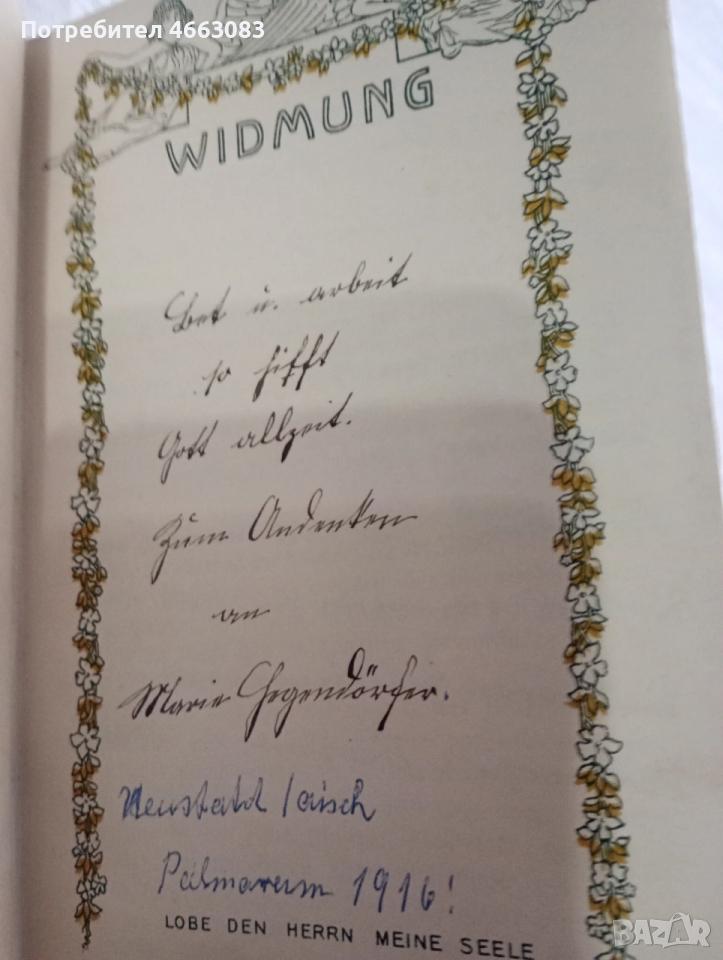 Потребител 4663083
WIDMUNG
Bet u. arbeit
so hifft
Gott allzeit.
Zum Andenken
an
Marie Hegendörfer.
Neustatd /aisch
Palmarum 1916!
LOBE DEN HERRN MEINE SEELE
BAZAR